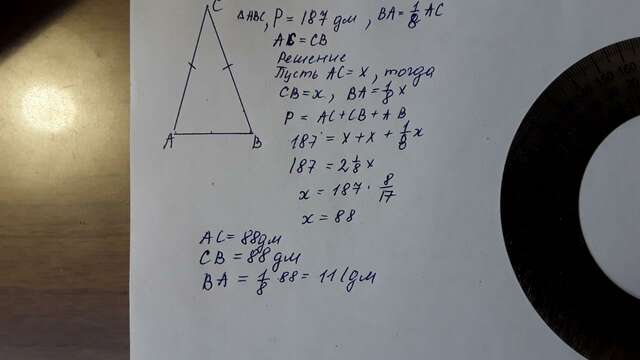 C
△ABC, P = 187 дм, BA = 1/8 AC
AC = CB
Решение
Пусть AC = x, тогда
CB = x, BA = 1/8 x
P = AC + CB + AB
187 = x + x + 1/8 x
187 = 2 1/8 x
x = 187 · 8/17
x = 88
A B
AC = 88 дм
CB = 88 дм
BA = 1/8 · 88 = 11 (дм